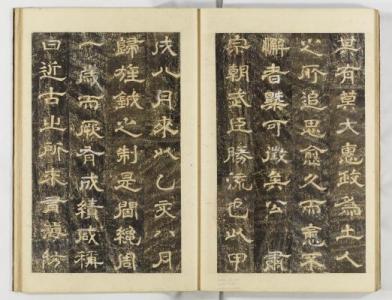 其有莫大惠政為土人
之所追思愈久而意不
懈者槩可徵矣公肅
宗朝武臣勝流也此甲
戌八月來此乙亥八月
歸旌鉞之制是間纔周
一歲而厥有成績咸稱
曰近古之所未有